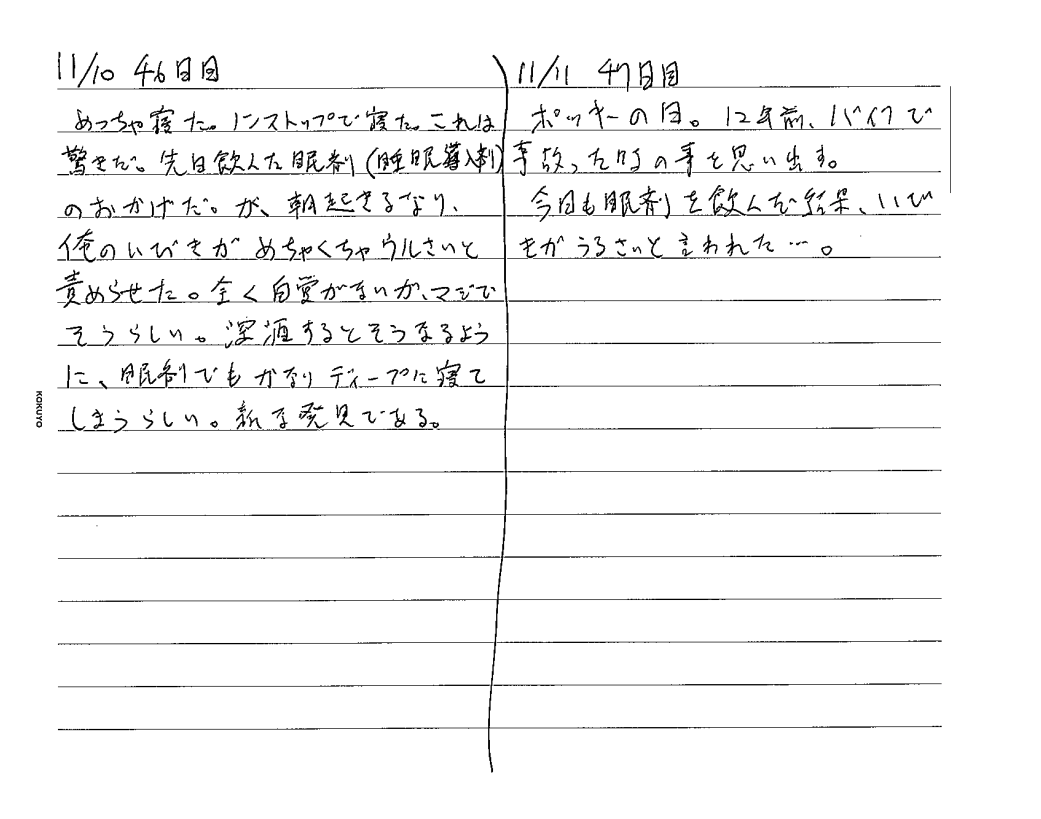 11/10 46日目
めっちゃ寝た。ノンストップで寝た。これは
驚きだ。先日飲んた眠剤(睡眠導入剤)
のおかげだ。が、朝起きるなり、
俺のいびきがめちゃくちゃウルさいと
責めらせた。全く自覚がないが、マジで
そうらしい。深酒するとそうなるよう
に、眠剤でもかなりディープに寝て
しまうらしい。新な発見である。
11/11 47日目
ポッキーの日。12年前、バイクで
事故った時の事を思い出す。
今日も眠剤を飲んだ結果、いび
きがうるさいと言われた…。
KOKUYO